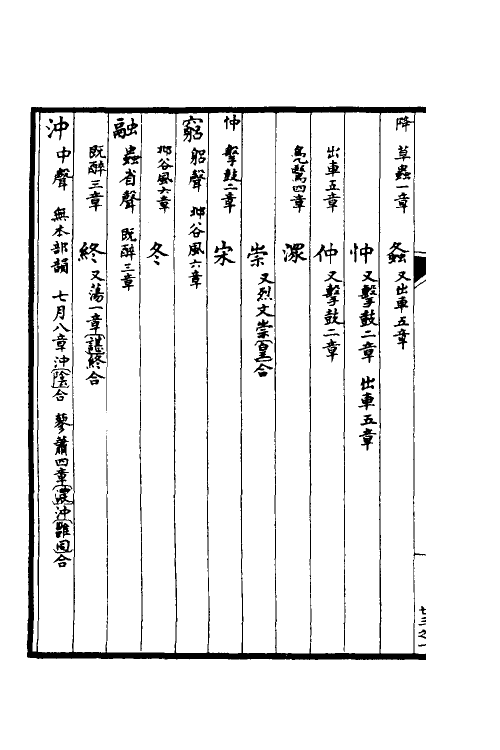 降 草蟲一章 螽 又出車五章
忡 又擊鼓二章 出車五章
出車五章 仲 又擊鼓二章
鳧鷖四章 潀
崇 又烈文崇皇合
仲 擊鼓二章 宋
窮 躳聲 邶谷風六章
邶谷風六章 冬
融 蟲省聲 既醉三章
既醉三章 終 又蕩一章諶終合
沖 中聲 無本部韻 七月八章沖陰合 蓼蕭四章濃沖雝同合
七三之一